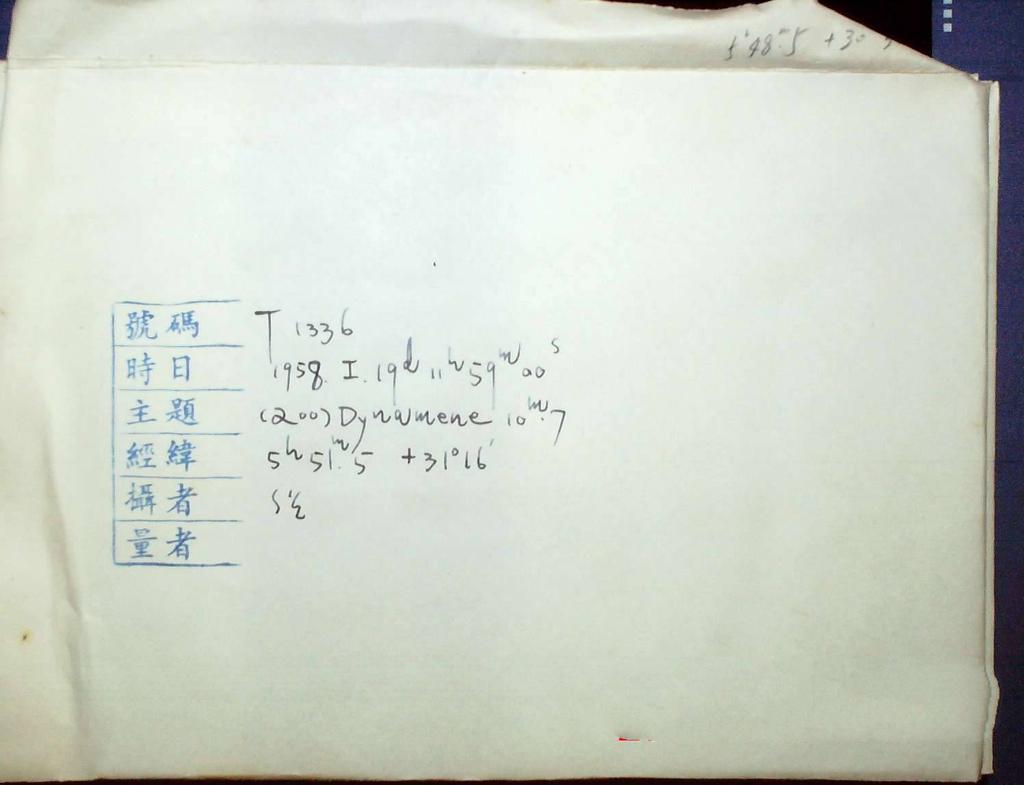 5ʰ48ᵐ.5 +30
號碼 T 1336
時日 1958. I. 19ᵈ 11ʰ 59ᵐ 00ˢ
主題 (200) Dynamene 10ᵐ.7
經緯 5ʰ 51ᵐ.5 +31°16′
攝者
量者